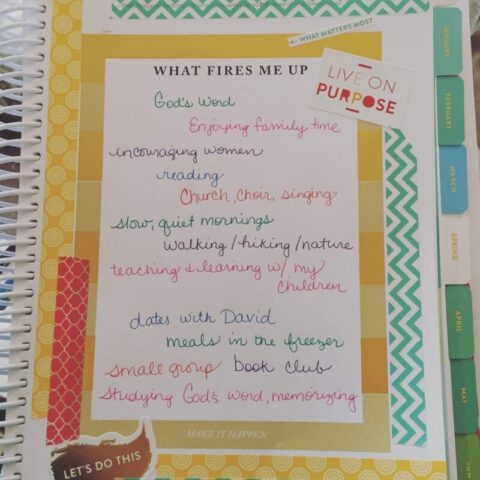 WHAT MATTERS MOST
WHAT FIRES ME UP
LIVE ON
PURPOSE
God's Word
Enjoying family time
encouraging women
reading
Church, choir, singing
slow, quiet mornings
walking/hiking/nature
teaching & learning w/ my
children
dates with David
meals in the freezer
small group book club
studying God's word, memorizing
MAKE IT HAPPEN
LET'S DO THIS
JANUARY
FEBRUARY
MARCH
SPRING
APRIL
MAY